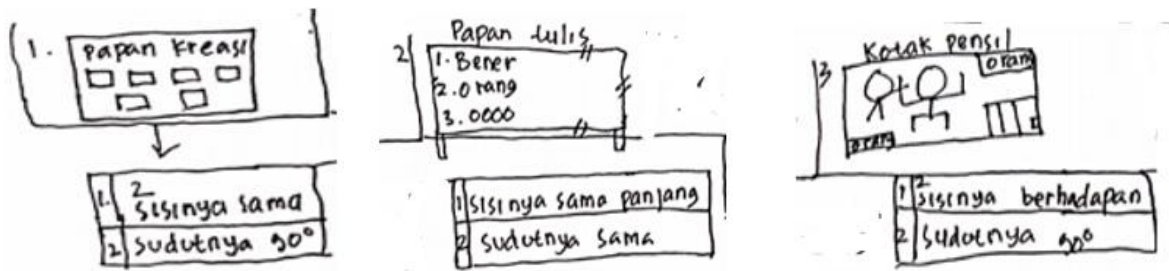 1. Papan Kreasi
1. 2 sisinya sama
2 sudutnya 90°
2 Papan tulis
1. Bener
2. Orang
3. 0000
1 sisinya sama panjang
2 sudutnya sama
3 Kotak pensil
orang
orang
1 2 sisinya berhadapan
2 sudutnya 90°